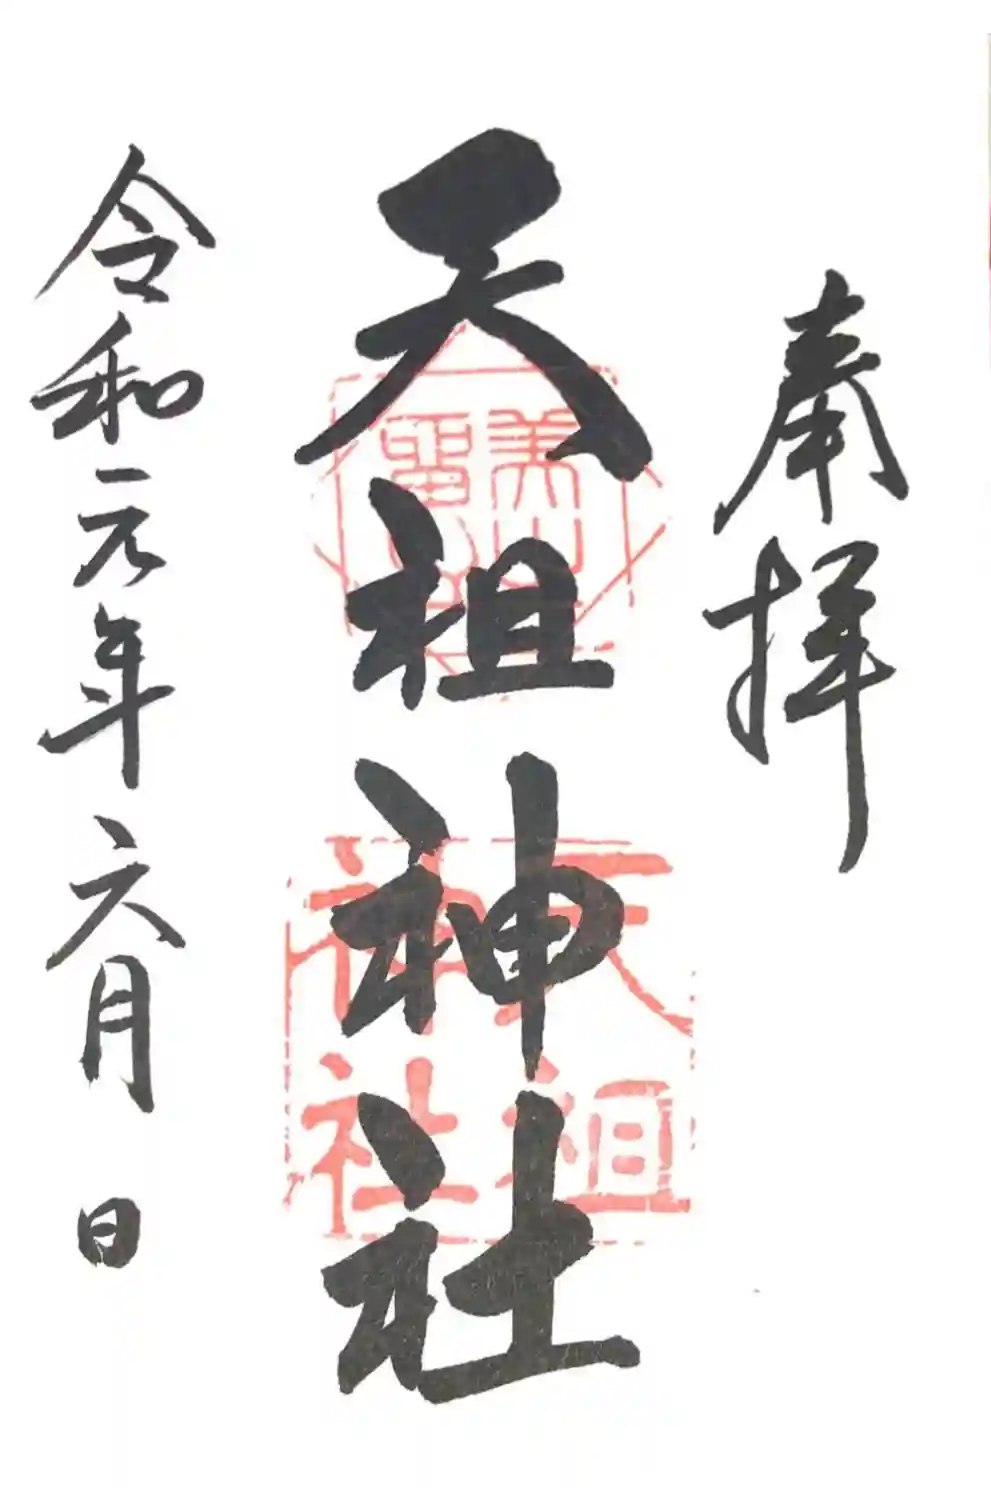 奉拝
天祖神社
天祖神社
令和元年六月 日